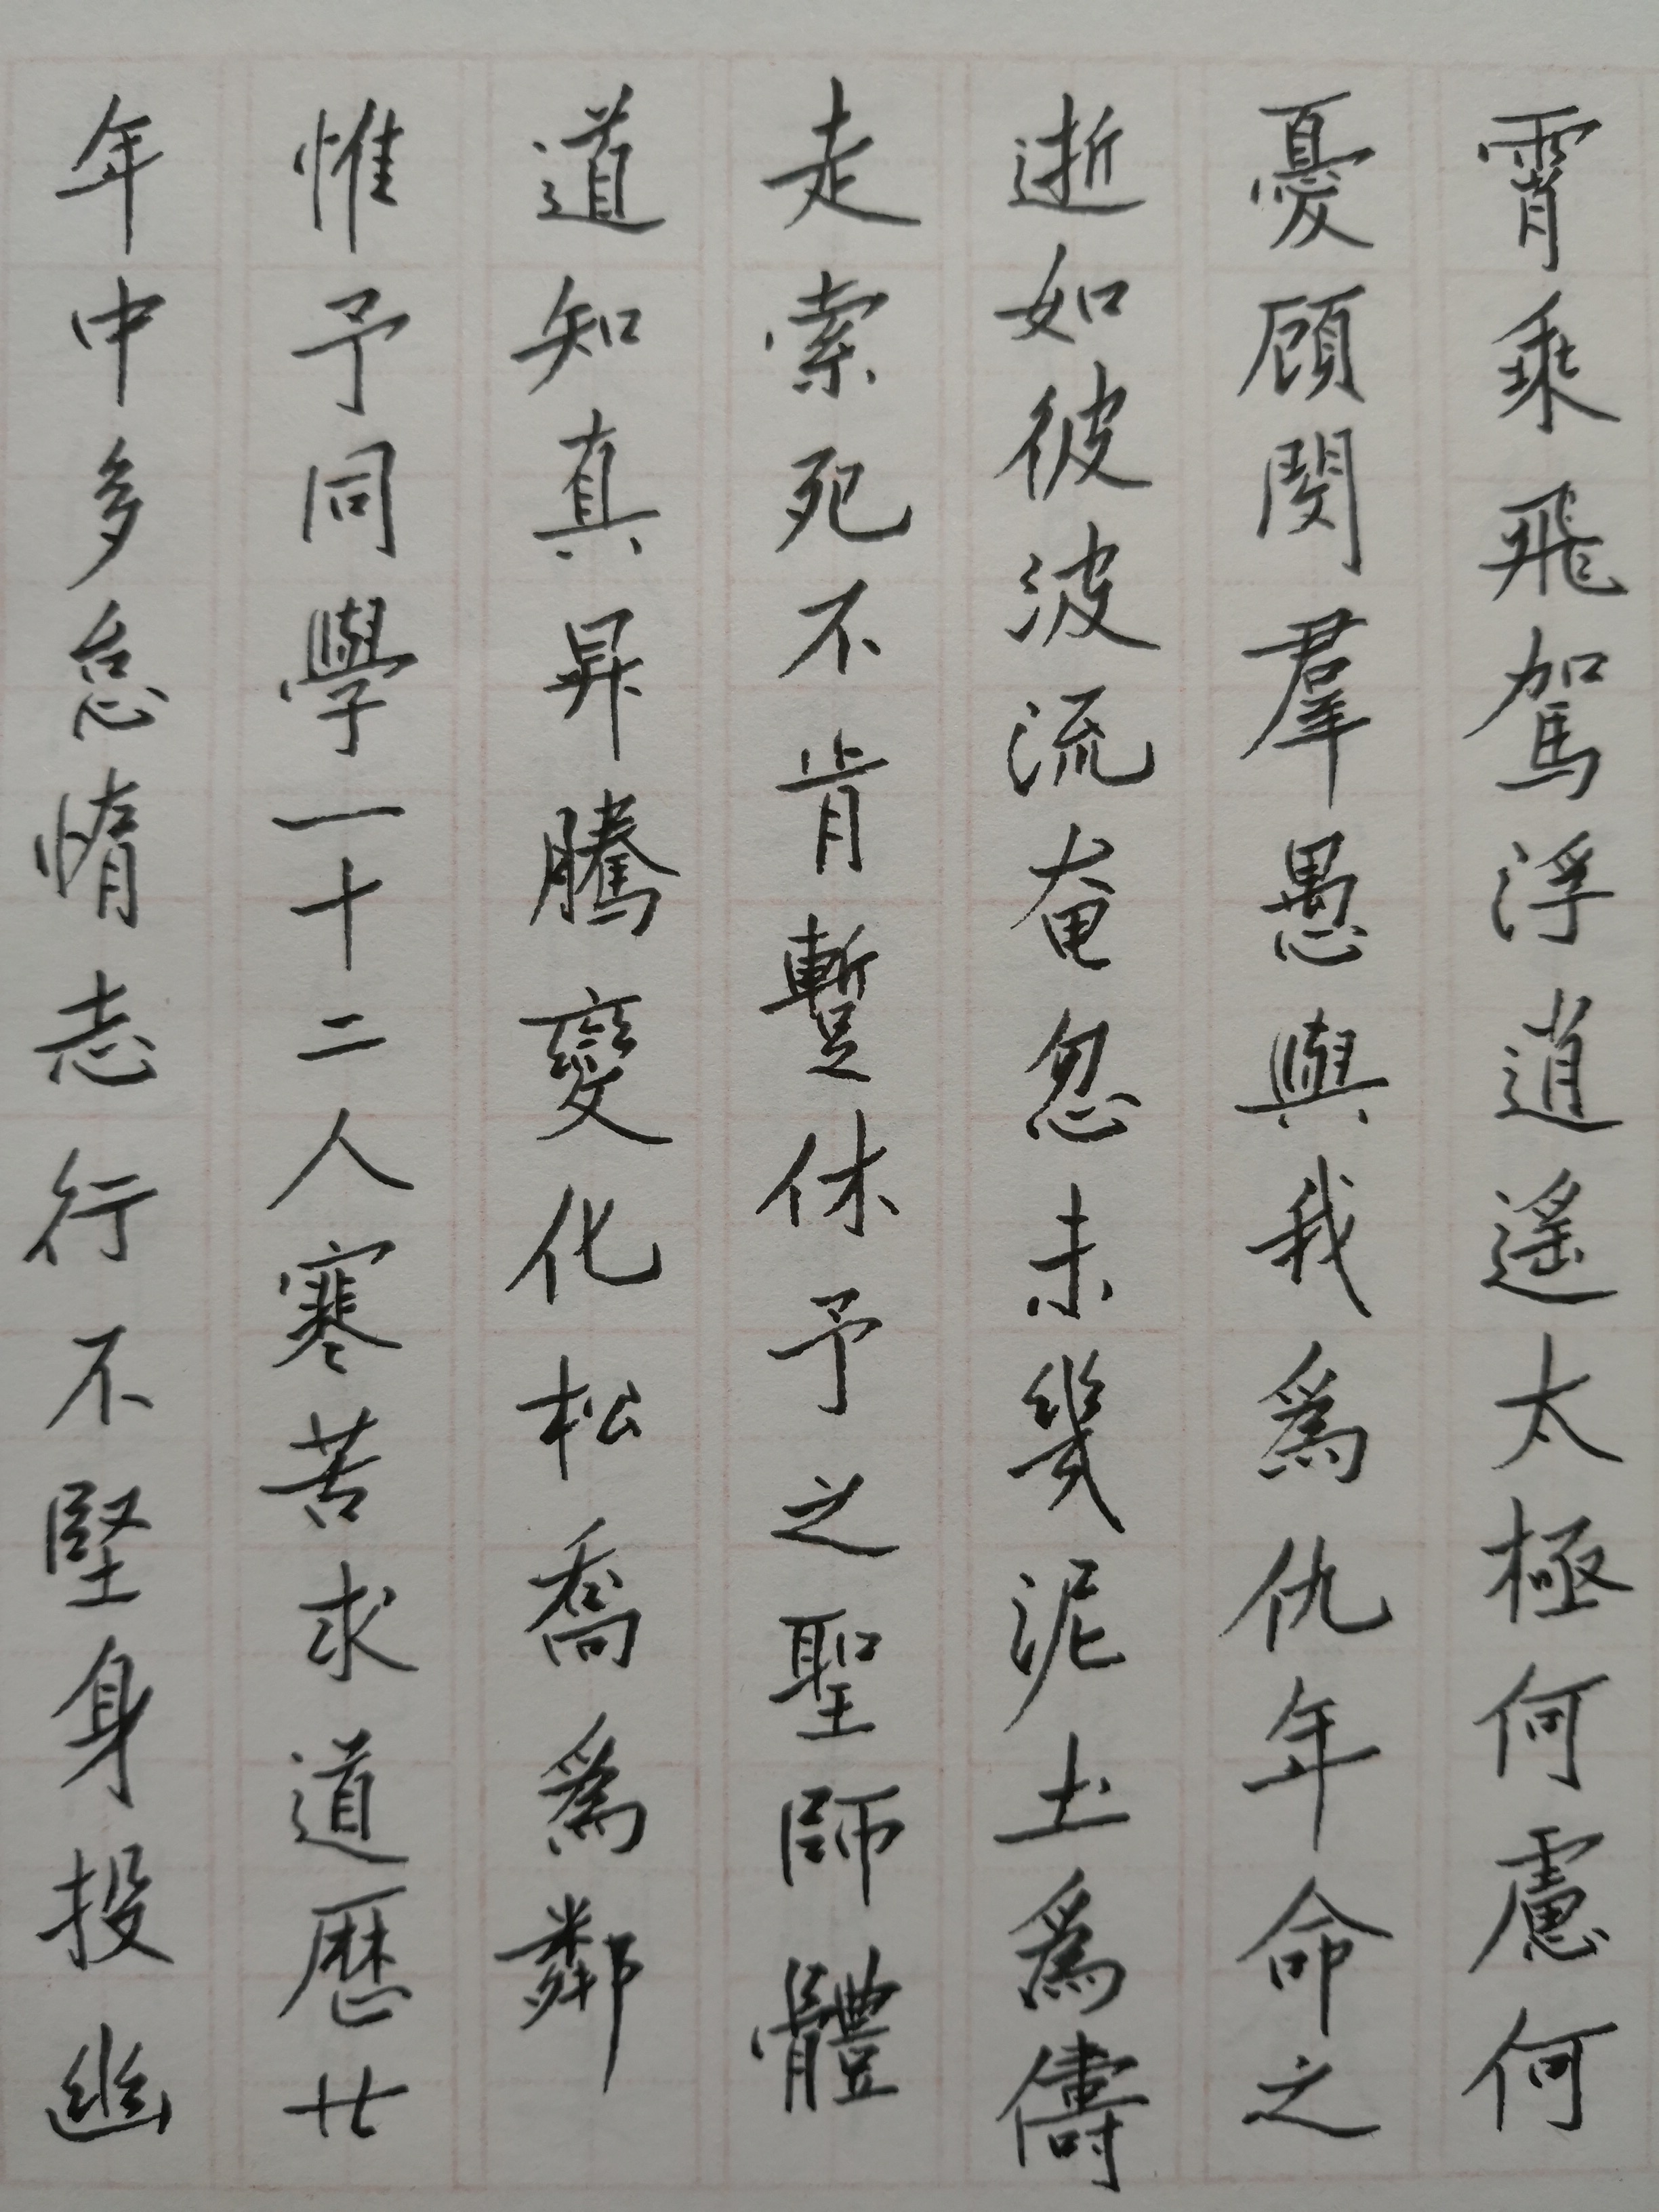 霄乘飛駕浮逍遙太極何慮何
憂顧閔羣愚與我爲仇年命之
逝如彼波流奄忽未幾泥土爲儔
走索死不肯暫休予之聖師體
道知真昇騰變化松喬爲鄰
惟予同學一十二人寒苦求道歷廿
年中多怠惰志行不堅身投幽